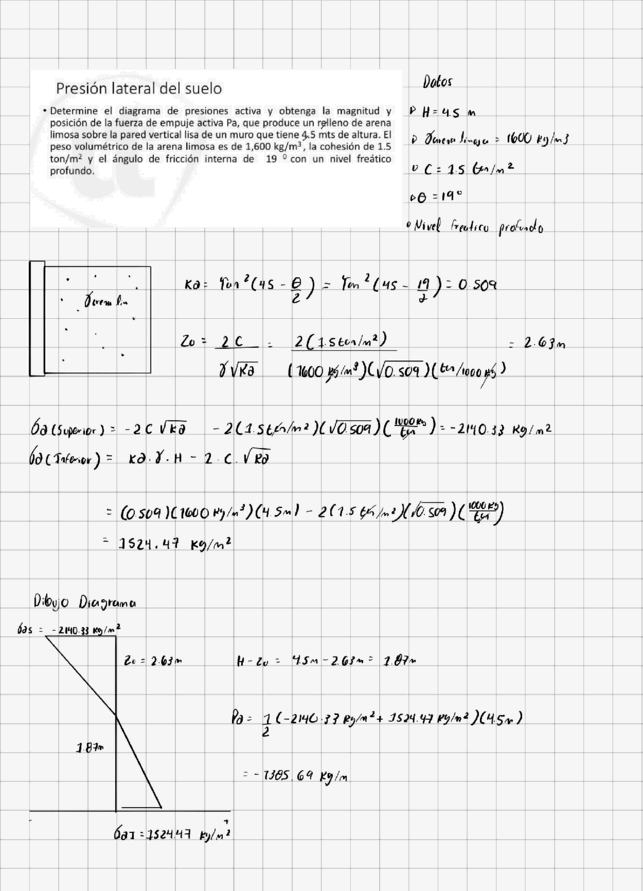 Presión lateral del suelo
• Determine el diagrama de presiones activa y obtenga la magnitud y
posición de la fuerza de empuje activa Pa, que produce un relleno de arena
limosa sobre la pared vertical lisa de un muro que tiene 4.5 mts de altura. El
peso volumétrico de la arena limosa es de 1,600 kg/m³, la cohesión de 1.5
ton/m² y el ángulo de fricción interna de 19 ⁰ con un nivel freático
profundo.
Datos
H = 4.5 m
γarena limosa = 1600 kg/m3
C = 1.5 ton/m²
θ = 19°
Nivel freatico profundo
γarena lim
Ka = Tan²(45 - θ/2) = Tan²(45 - 19/2) = 0.509
Zo = 2C / γ√Ka = 2(1.5 ton/m²) / (1600 kg/m³)(√0.509)(ton/1000 kg) = 2.63m
σa(Superior) = -2C√Ka -2(1.5ton/m²)(√0.509)(1000kg/ton) = -2140.33 kg/m²
σa(Inferior) = Ka·γ·H - 2·C·√Ka
= (0.509)(1600 kg/m³)(4.5m) - 2(1.5 ton/m²)(√0.509)(1000kg/ton)
= 1524.47 kg/m²
Dibujo Diagrama
σas = -2140.33 kg/m²
Zo = 2.63m
H-Zo = 4.5m - 2.63m = 1.87m
Pa = 1/2 (-2140.33 kg/m² + 1524.47 kg/m²)(4.5m)
1.87m
= -1385.69 kg/m
σaI = 1524.47 kg/m²